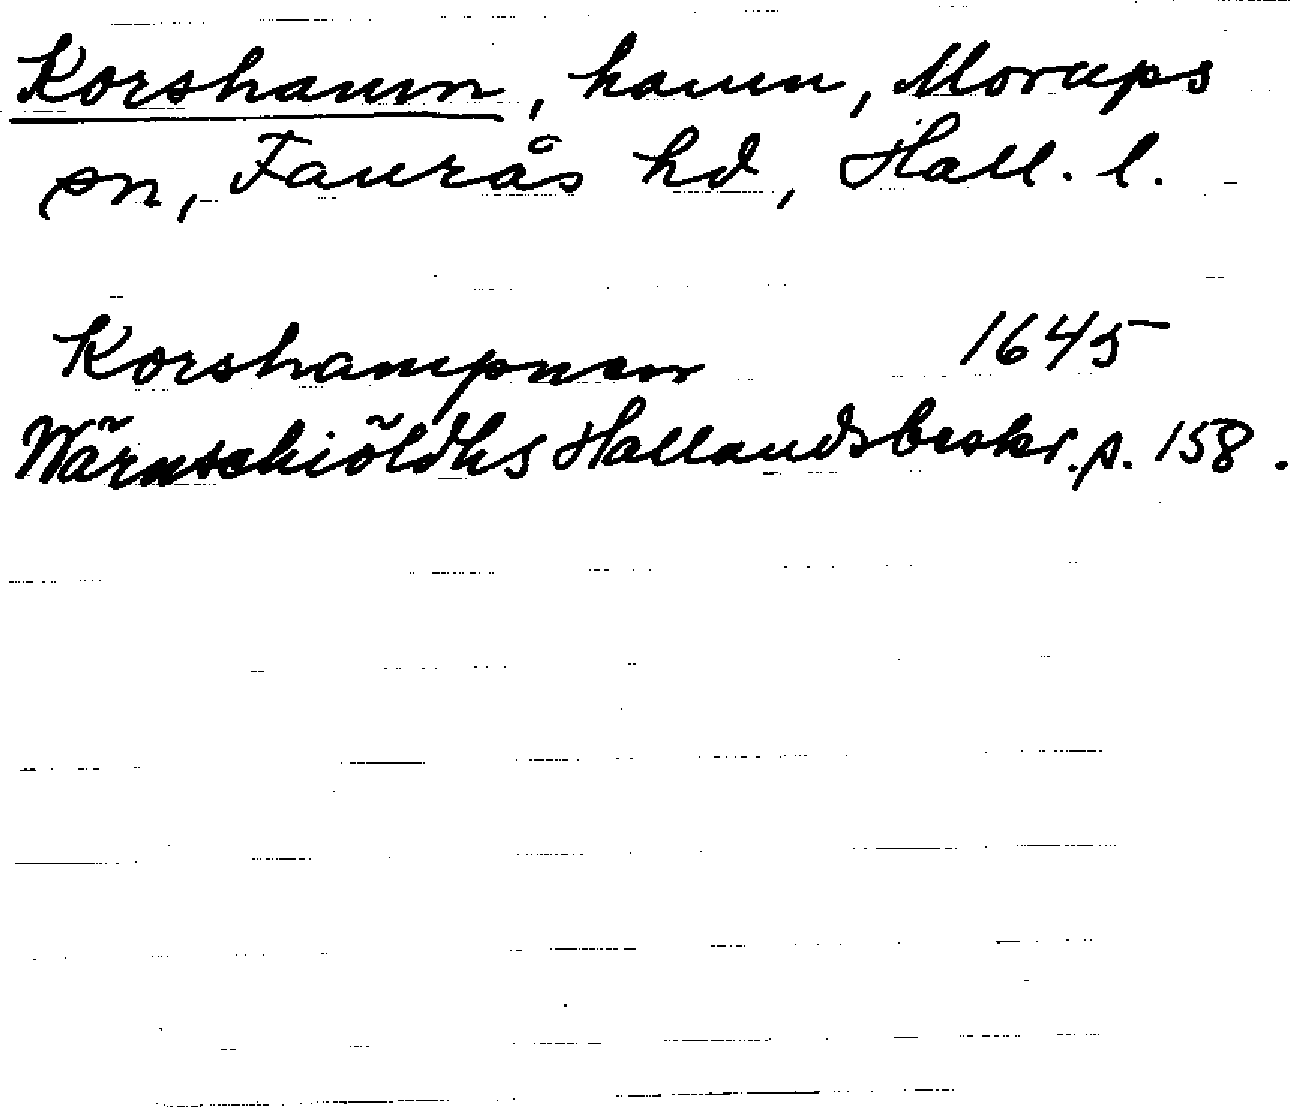 Korshamn, hamn, Morups
sn, Faurås hd, Hall. l.
Korshampnen 1645
Wärnschiöldhs Hallandsbeskr. p. 158.